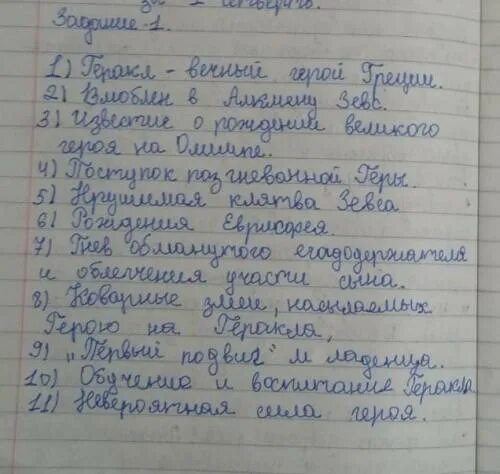 за 1 четверть.
Задание-1.
1) Геракл - вечный герой Греции.
2) Влюблен в Алкмену Зевс.
3) Известие о рождении великого
героя на Олимпе.
4) Поступок разгневанной Геры.
5) Нрушимая клятва Зевса
6) Рождения Еврисфея.
7) Гнев обманутого
и облегчения участи сына.
8) Коварные змеи, насылаемых
Герою на Геракла,
9) "Первый подвиг" младенца.
10) Обучение и воспитание Геракла
11) Невероятная сила героя.